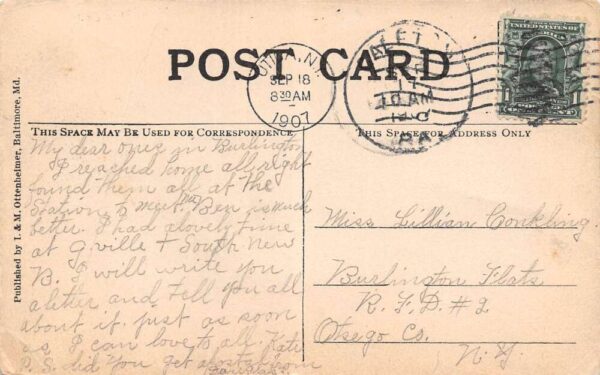 POST CARD
UTICA, N.Y.
SEP 18
8 30 AM
1907
GALETON
17
10 AM
PA.
1
1
THIS SPACE MAY BE USED FOR CORRESPONDENCE
THIS SPACE FOR ADDRESS ONLY
Published by I. & M. Ottenheimer, Baltimore, Md.
My dear ones in Burlington
I reached home all right
found them all at the
Station to meet me Ben is much
better. I had a lovely time
at G.ville & South New
B. I will write you
a letter and tell you all
about it just as soon
as I can love to all. Kate
P.S. did you get a postal from
Miss Lillian Conkling.
Burlington Flats
R.F.D. #2
Otsego Co.
N.Y.